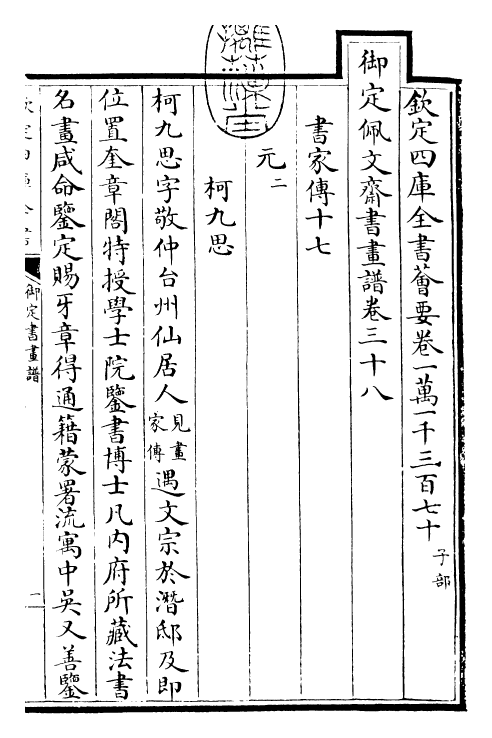 欽定四庫全書薈要卷一萬一千三百七十 子部
御定佩文齋書畫譜卷三十八
書家傳十七
元二
柯九思
柯九思字敬仲台州仙居人見畫家傳遇文宗於潛邸及即
位置奎章閣特授學士院鑒書博士凡内府所藏法書
名畫咸命鑒定賜牙章得通籍蒙署流寓中吳又善鑒
御定書畫譜